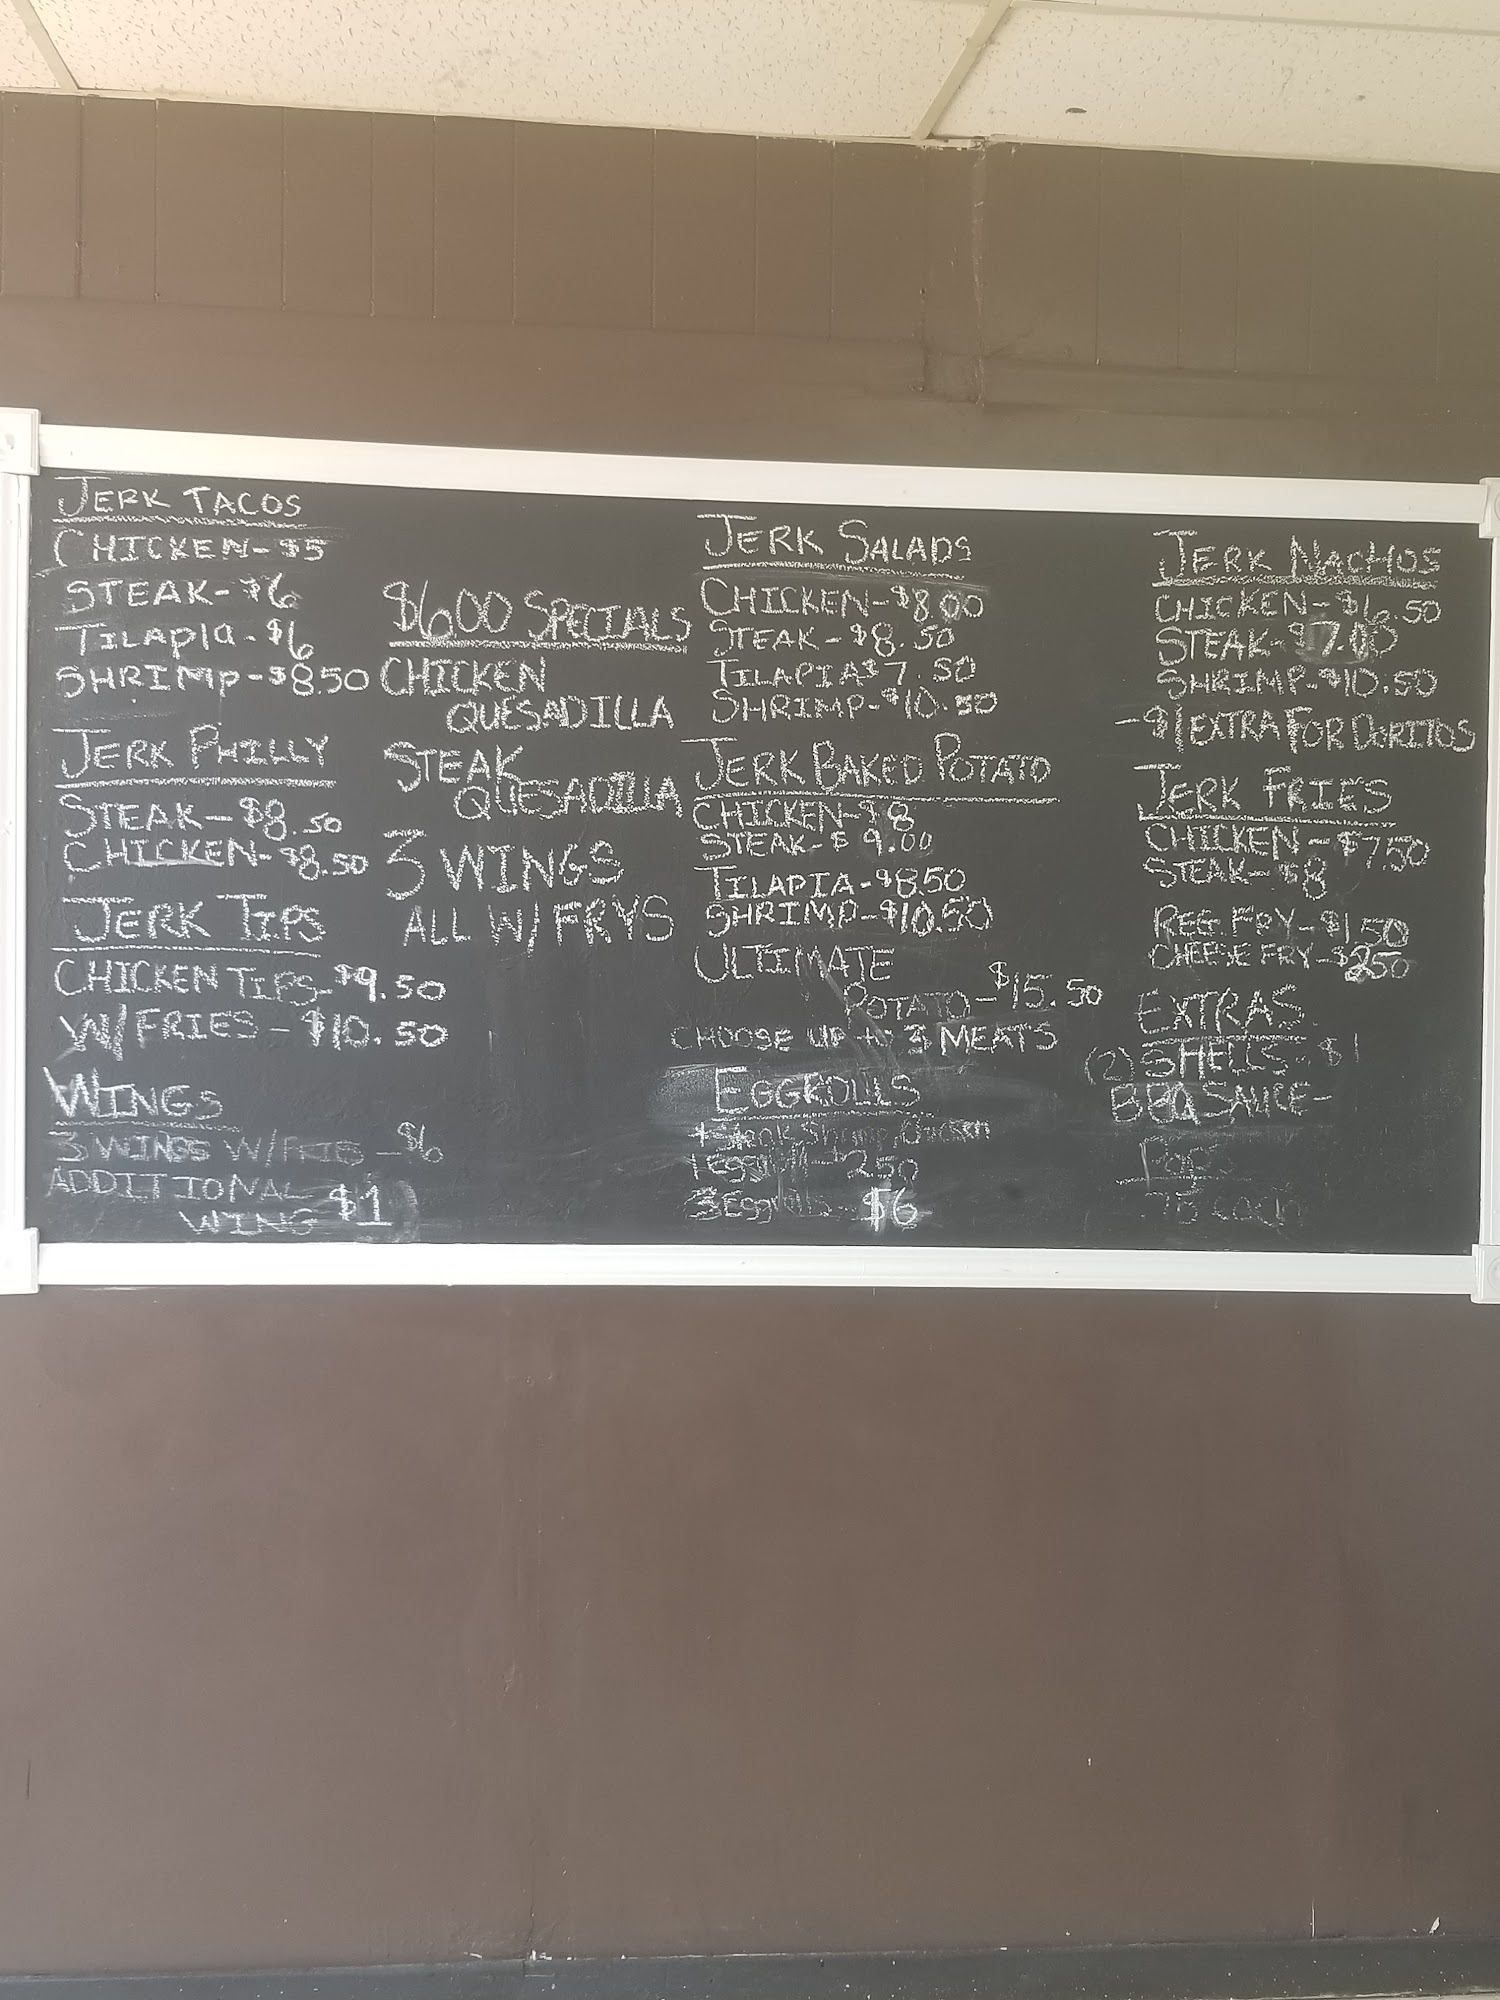 JERK TACOS
CHICKEN-$5
STEAK-$6
TILAPIA-$6
SHRIMP-$8.50
JERK PHILLY
STEAK-$8.50
CHICKEN-$8.50
JERK TIPS
CHICKEN TIPS-$9.50
W/FRIES-$10.50
WINGS
3 WINGS W/FRIES-$6
ADDITIONAL
WING $1
$600 SPECIALS
CHICKEN
QUESADILLA
STEAK
QUESADILLA
3 WINGS
ALL W/FRYS
JERK SALADS
CHICKEN-$8.00
STEAK-$8.50
TILAPIA$7.50
SHRIMP-$10.50
JERK BAKED POTATO
CHICKEN-$8
STEAK-$9.00
TILAPIA-$8.50
SHRIMP-$10.50
ULTIMATE
POTATO-$15.50
CHOOSE UP to 3 MEATS
EGGROLLS
Steak, Shrimp, Chicken
1 Eggroll-$250
3 Eggrolls-$6
JERK NACHOS
CHICKEN-$6.50
STEAK-$7.00
SHRIMP-$10.50
-$1 EXTRA FOR DORITOS
JERK FRIES
CHICKEN-$750
STEAK-$8
REG. FRY-$150
CHEESE FRY-$250
EXTRAS
(2) SHELLS-$1
BBQ SAUCE-
.75 each